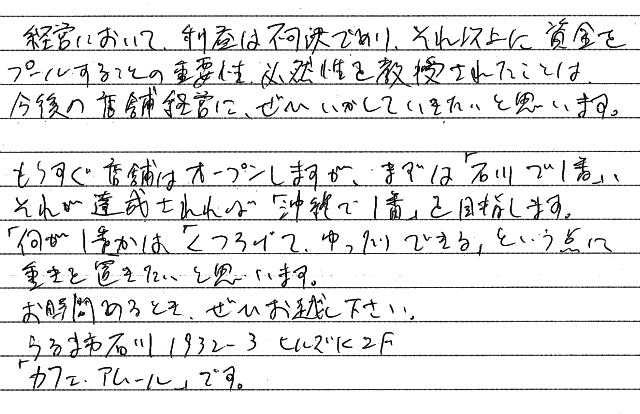 経営において、利益は不可決であり、それ以上に資金を
プールすることの重要性、必然性を教授されたことは、
今後の店舗経営に、ぜひいかしていきたいと思います。
もうすぐ店舗はオープンしますが、まずは「石川で1番」、
それが達成されれば「沖縄で1番」を目指します。
「何が1番かは「くつろげて、ゆったりできる」という点に
重きを置きたいと思います。
お時間あるとき、ぜひお越し下さい。
うるま市石川1932-3 ヒルズK2F
「カフェ・アムール」です。